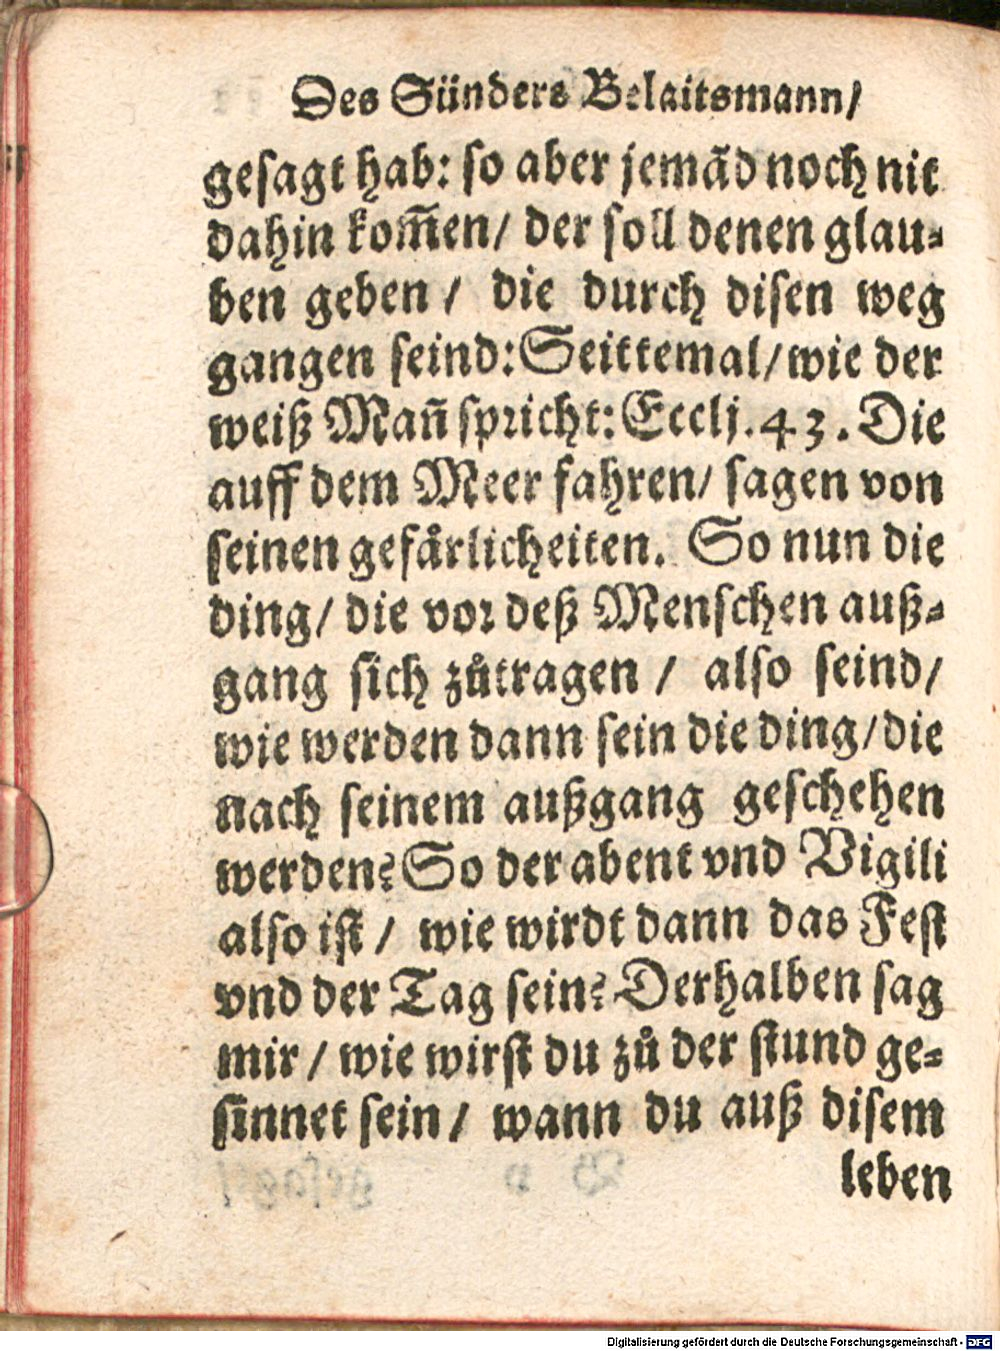 Des Sünders Belaitsmann/
gesagt hab: so aber jemãd noch nit
dahin kom̃en/ der soll denen glau-
ben geben / die durch disen weg
gangen seind: Seittemal/ wie der
weiß Mañ spricht: Ecclj. 43. Die
auff dem Meer fahren/ sagen von
seinen gefårlicheiten. So nun die
ding/ die vor deß Menschen auß-
gang sich zůtragen / also seind/
wie werden dann sein die ding/ die
nach seinem außgang geschehen
werden? So der abent vnd Vigili
also ist / wie wirdt dann das Fest
vnd der Tag sein? Derhalben sag
mir / wie wirst du zů der stund ge-
sinnet sein / wann du auß disem
leben
Digitalisierung gefördert durch die Deutsche Forschungsgemeinschaft - DFG